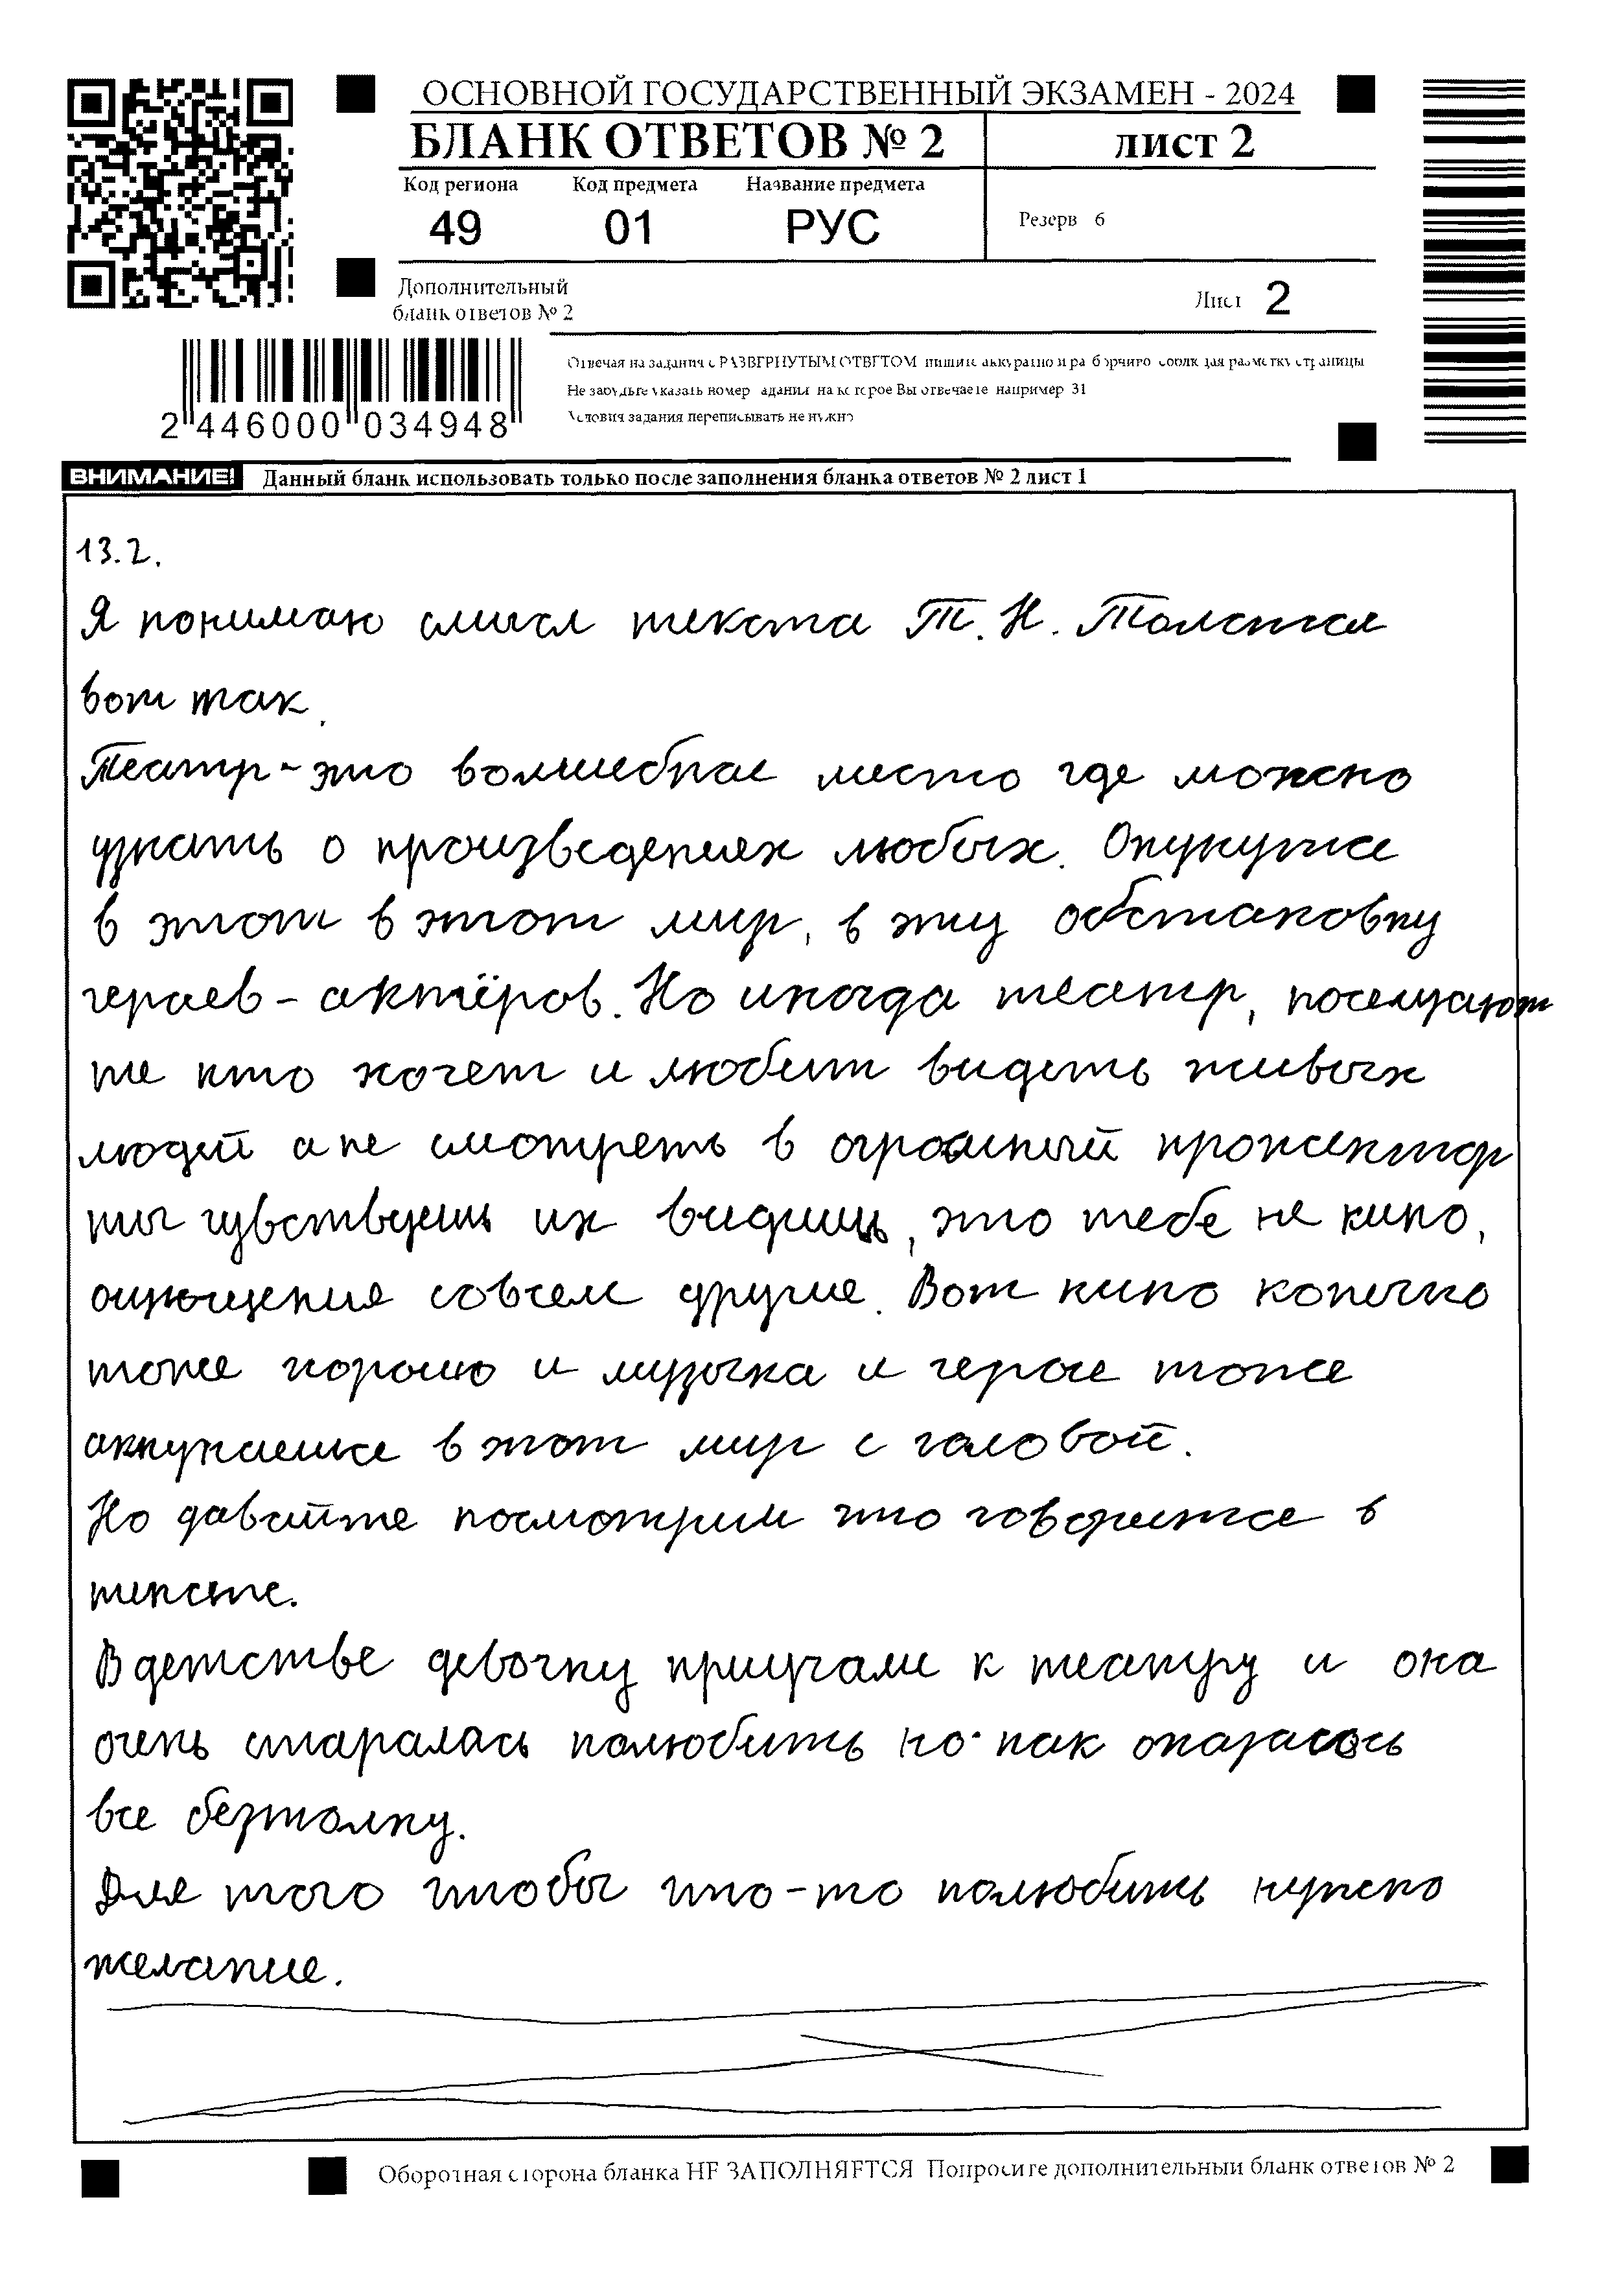 ОСНОВНОЙ ГОСУДАРСТВЕННЫЙ ЭКЗАМЕН - 2024
БЛАНК ОТВЕТОВ № 2
лист 2
Код региона
Код предмета
Название предмета
49
01
РУС
Резерв 6
Дополнительный
бланк ответов № 2
Лист 2
Отвечая на задания с РАЗВЕРНУТЫМ ОТВЕТОМ пишите аккуратно и разборчиво соблюдая разметку страницы
Не забудьте указать номер задания на которое Вы отвечаете например 31
Условия задания переписывать не нужно
2 446000 034948
ВНИМАНИЕ!
Данный бланк использовать только после заполнения бланка ответов № 2 лист 1
13.2.
Я понимаю смысл текста Т. Н. Толстая
вот так.
Театр - это волшебное место где можно
узнать о произведениях любых. Окунутся
в этот в этот мир, в эту обстановку
героев - актёров. Но иногда театр, посещают
те кто хочет и любит видеть живых
людей а не смотреть в огромный прожектор
ты чувствуешь их видишь, это тебе не кино,
ощющения совсем другие. Вот кино конечно
тоже хорошо и музыка и герои тоже
аккунаешся в этот мир с головой.
Но давайте посмотрим что говорится в
тексте.
В детстве девочку приучали к театру и она
очень старалась полюбить но как оказалось
все безтолку.
Для того чтобы что-то полюбить нужно
желание.
Оборотная сторона бланка НЕ ЗАПОЛНЯЕТСЯ Попросите дополнительный бланк ответов № 2